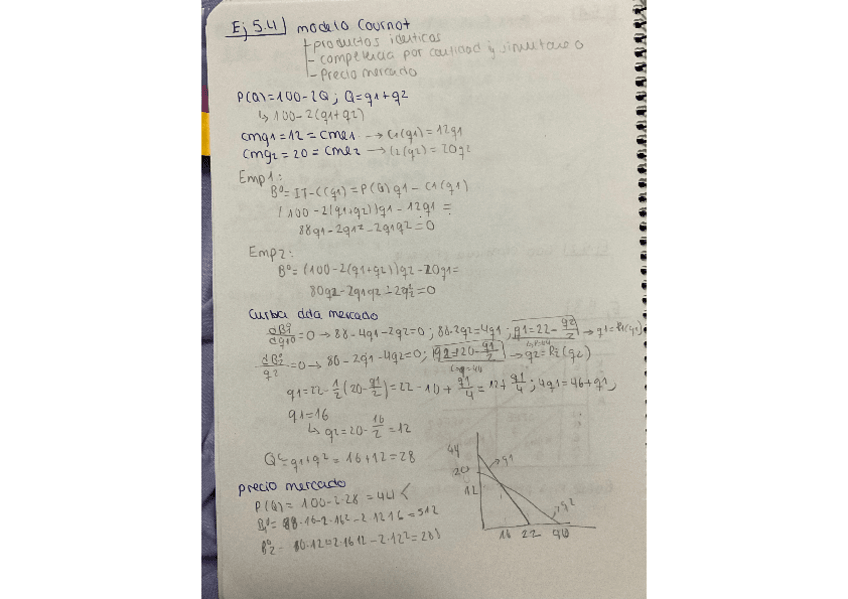 Ej 5.4 modelo Cournot
- productos identicos
- competencia por cantidad y simultaneo
- Precio mercado
P(Q)=100-2Q ; Q=q1+q2
↳ 100-2(q1+q2)
cmg1=12=cme1 → C1(q1)=12q1
cmg2=20=cme2 → C2(q2)=20q2
Emp1:
Bº=IT-C(q1)=P(Q)q1-C1(q1)
(100-2(q1+q2))q1-12q1=
88q1-2q1²-2q1q2=0
Emp2:
Bº=(100-2(q1+q2))q2-20q1=
80q2-2q1q2-2q2²=0
Curba mercado
=0 → 88-4q1-2q2=0; 88-2q2=4q1; q1=22-q2/2 → q1=R1(q1)
=0 → 80-2q1-4q2=0; q2=20-q1/2 → q2=R2(q2)
q1=22-1/2(20-q1/2)=22-10+q1/4=12+q1/4; 4q1=46+q1,
q1=16
↳ q2=20-16/2=12
Q=q1+q2=16+12=28
precio mercado
P(Q)=100-2·28=44
Bº1=88·16-2·16²-2·12·16=512
Bº2=80·12-2·16·12-2·12²=
44
20
12
q1
q2
16 22 40